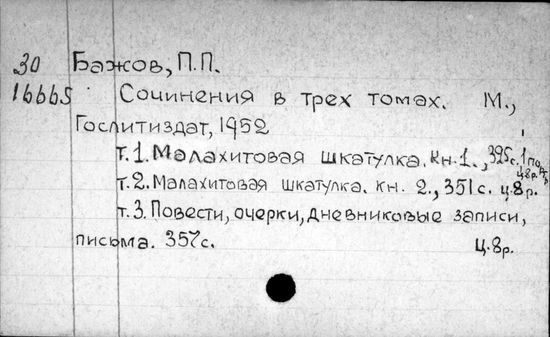 30 Бажов, П.П.
16665 Сочинения в трех томах. М.,
Гослитиздат, 1952
т.1. Малахитовая шкатулка. Кн.1., 325с. 1 по
ц.8р.
т.2. Малахитовая шкатулка. кн. 2., 351с. ц.8р.
т.3. Повести, очерки, дневниковые записи,
письма. 357с. Ц.8р.